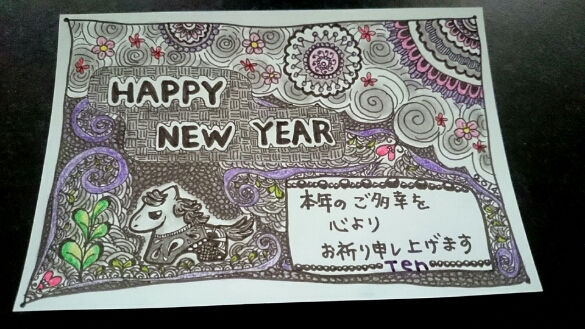 HAPPY
NEW YEAR
本年のご多幸を
心より
お祈り申し上げます
Ten